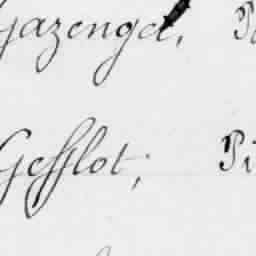 Gazengel, P
Gefflot; Pi